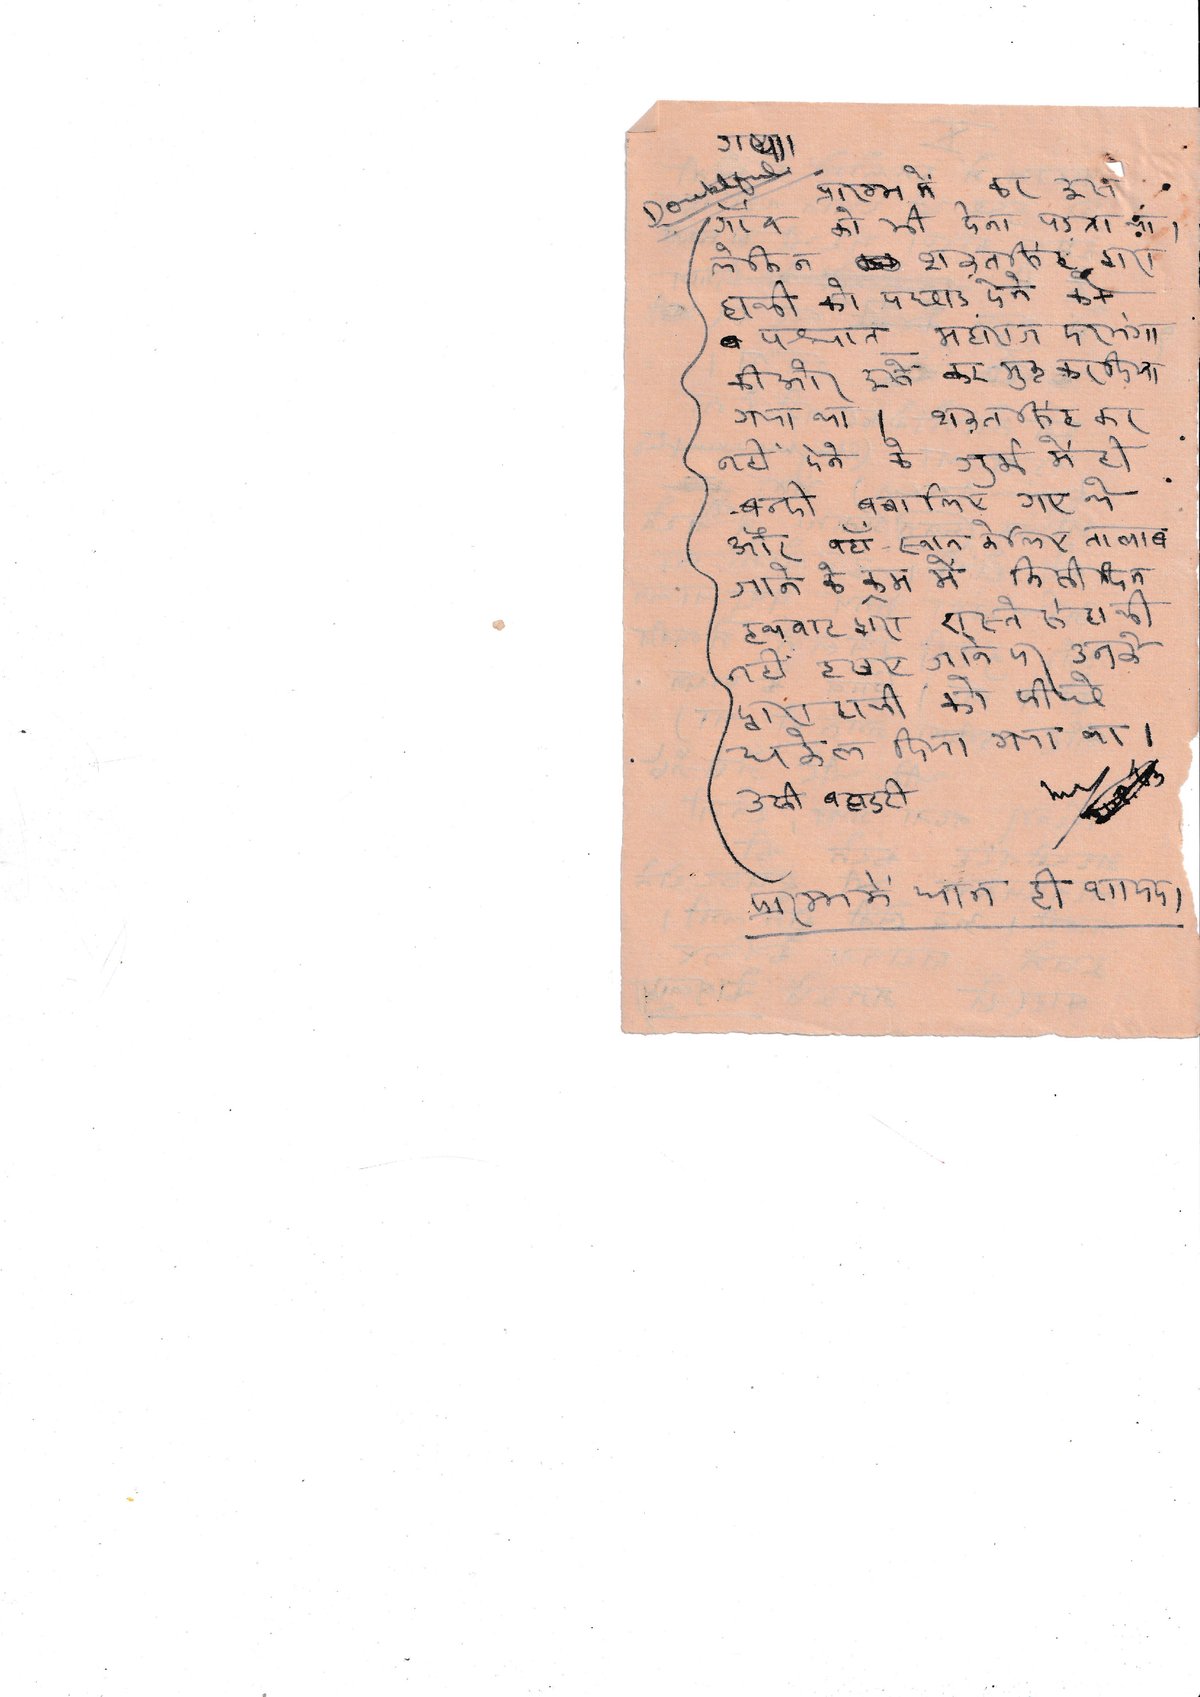 गया।
Doubtful
प्रारम्भ में कर इस
गाँव को भी देना पड़ता था।
लेकिन शत्रुतसिंह द्वारा
हाथी को पछाड़ देने के
पश्चात महाराज दरभंगा
की ओर इसे कर मुक्त कर दिया
गया था। कर
नहीं देने के जुर्म में ही
बन्दी बना लिए गए थे
और वहाँ स्नान के लिए तालाब
जाने के क्रम में किसी दिन
हथवाह द्वारा रास्ते से हाथी
नहीं हटाए जाने पर उनके
द्वारा हाथी को पीछे
धकेल दिया गया था।
उसी
प्रारम्भ में थान ही शायद।